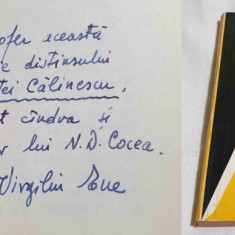 ofer această
e distinsului
tei Călinescu,
t cândva și
r lui N. D. Cocea.
Virgiliu Ene